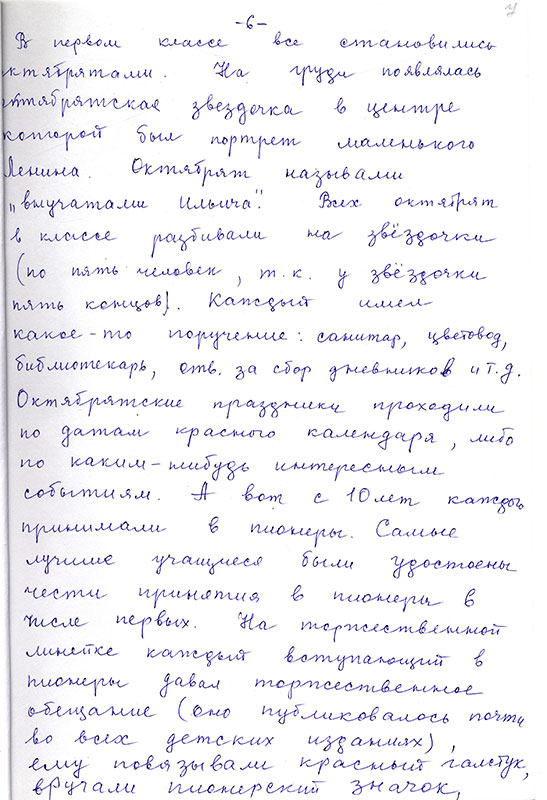 -6-
В первом классе все становились
ктябрятами. На груди появлялась
ктябрятская звездочка в центре
которой был портрет маленького
Ленина. Октябрят называли
"внучатами Ильича". Всех октябрят
в классе разбивали на звёздочки
(по пять человек, т.к. у звёздочки
пять концов). Каждый имел
какое-то поручение: санитар, цветовод,
библиотекарь, отв. за сбор дневников и т.д.
Октябрятские праздники проходили
по датам красного календаря, либо
по каким-нибудь интересным
событиям. А вот с 10 лет каждого
принимали в пионеры. Самые
лучшие учащиеся были удостоены
чести принятия в пионеры в
числе первых. На торжественной
линейке каждый вступающий в
пионеры давал торжественное
обещание (оно публиковалось почти
во всех детских изданиях),
ему повязывали красный галстук,
вручали пионерский значок,